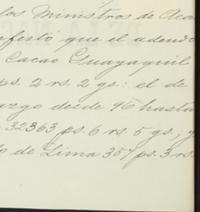 los Ministros de Aca
festó que el adeudo
Cacao Guayaquil
ps. 2 rs. 2 gs: el de
argo desde 96 hasta
32363 ps 6 rs. 5 gs; y
o de Lima 357 ps. 3 rs